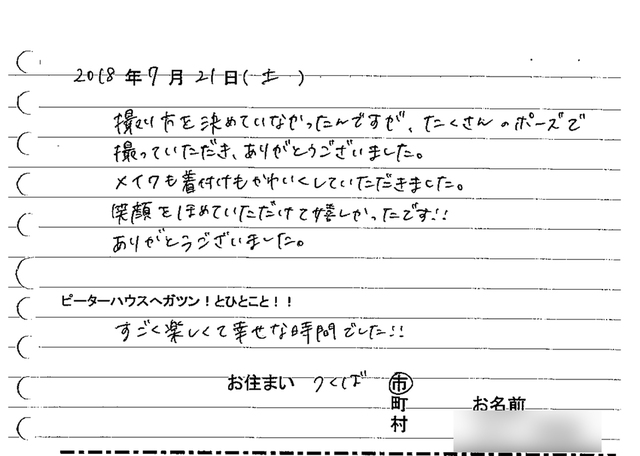 2018年7月21日(土)
撮り方を決めていなかったんですが、たくさんのポーズで
撮っていただき、ありがとうございました。
メイクも着付けもかわいくしていただきました。
笑顔をほめていただけて嬉しかったです!!
ありがとうございました。
ピーターハウスへガツン!とひとこと!!
すごく楽しくて幸せな時間でした!!
お住まい つくば 市
町
村
お名前